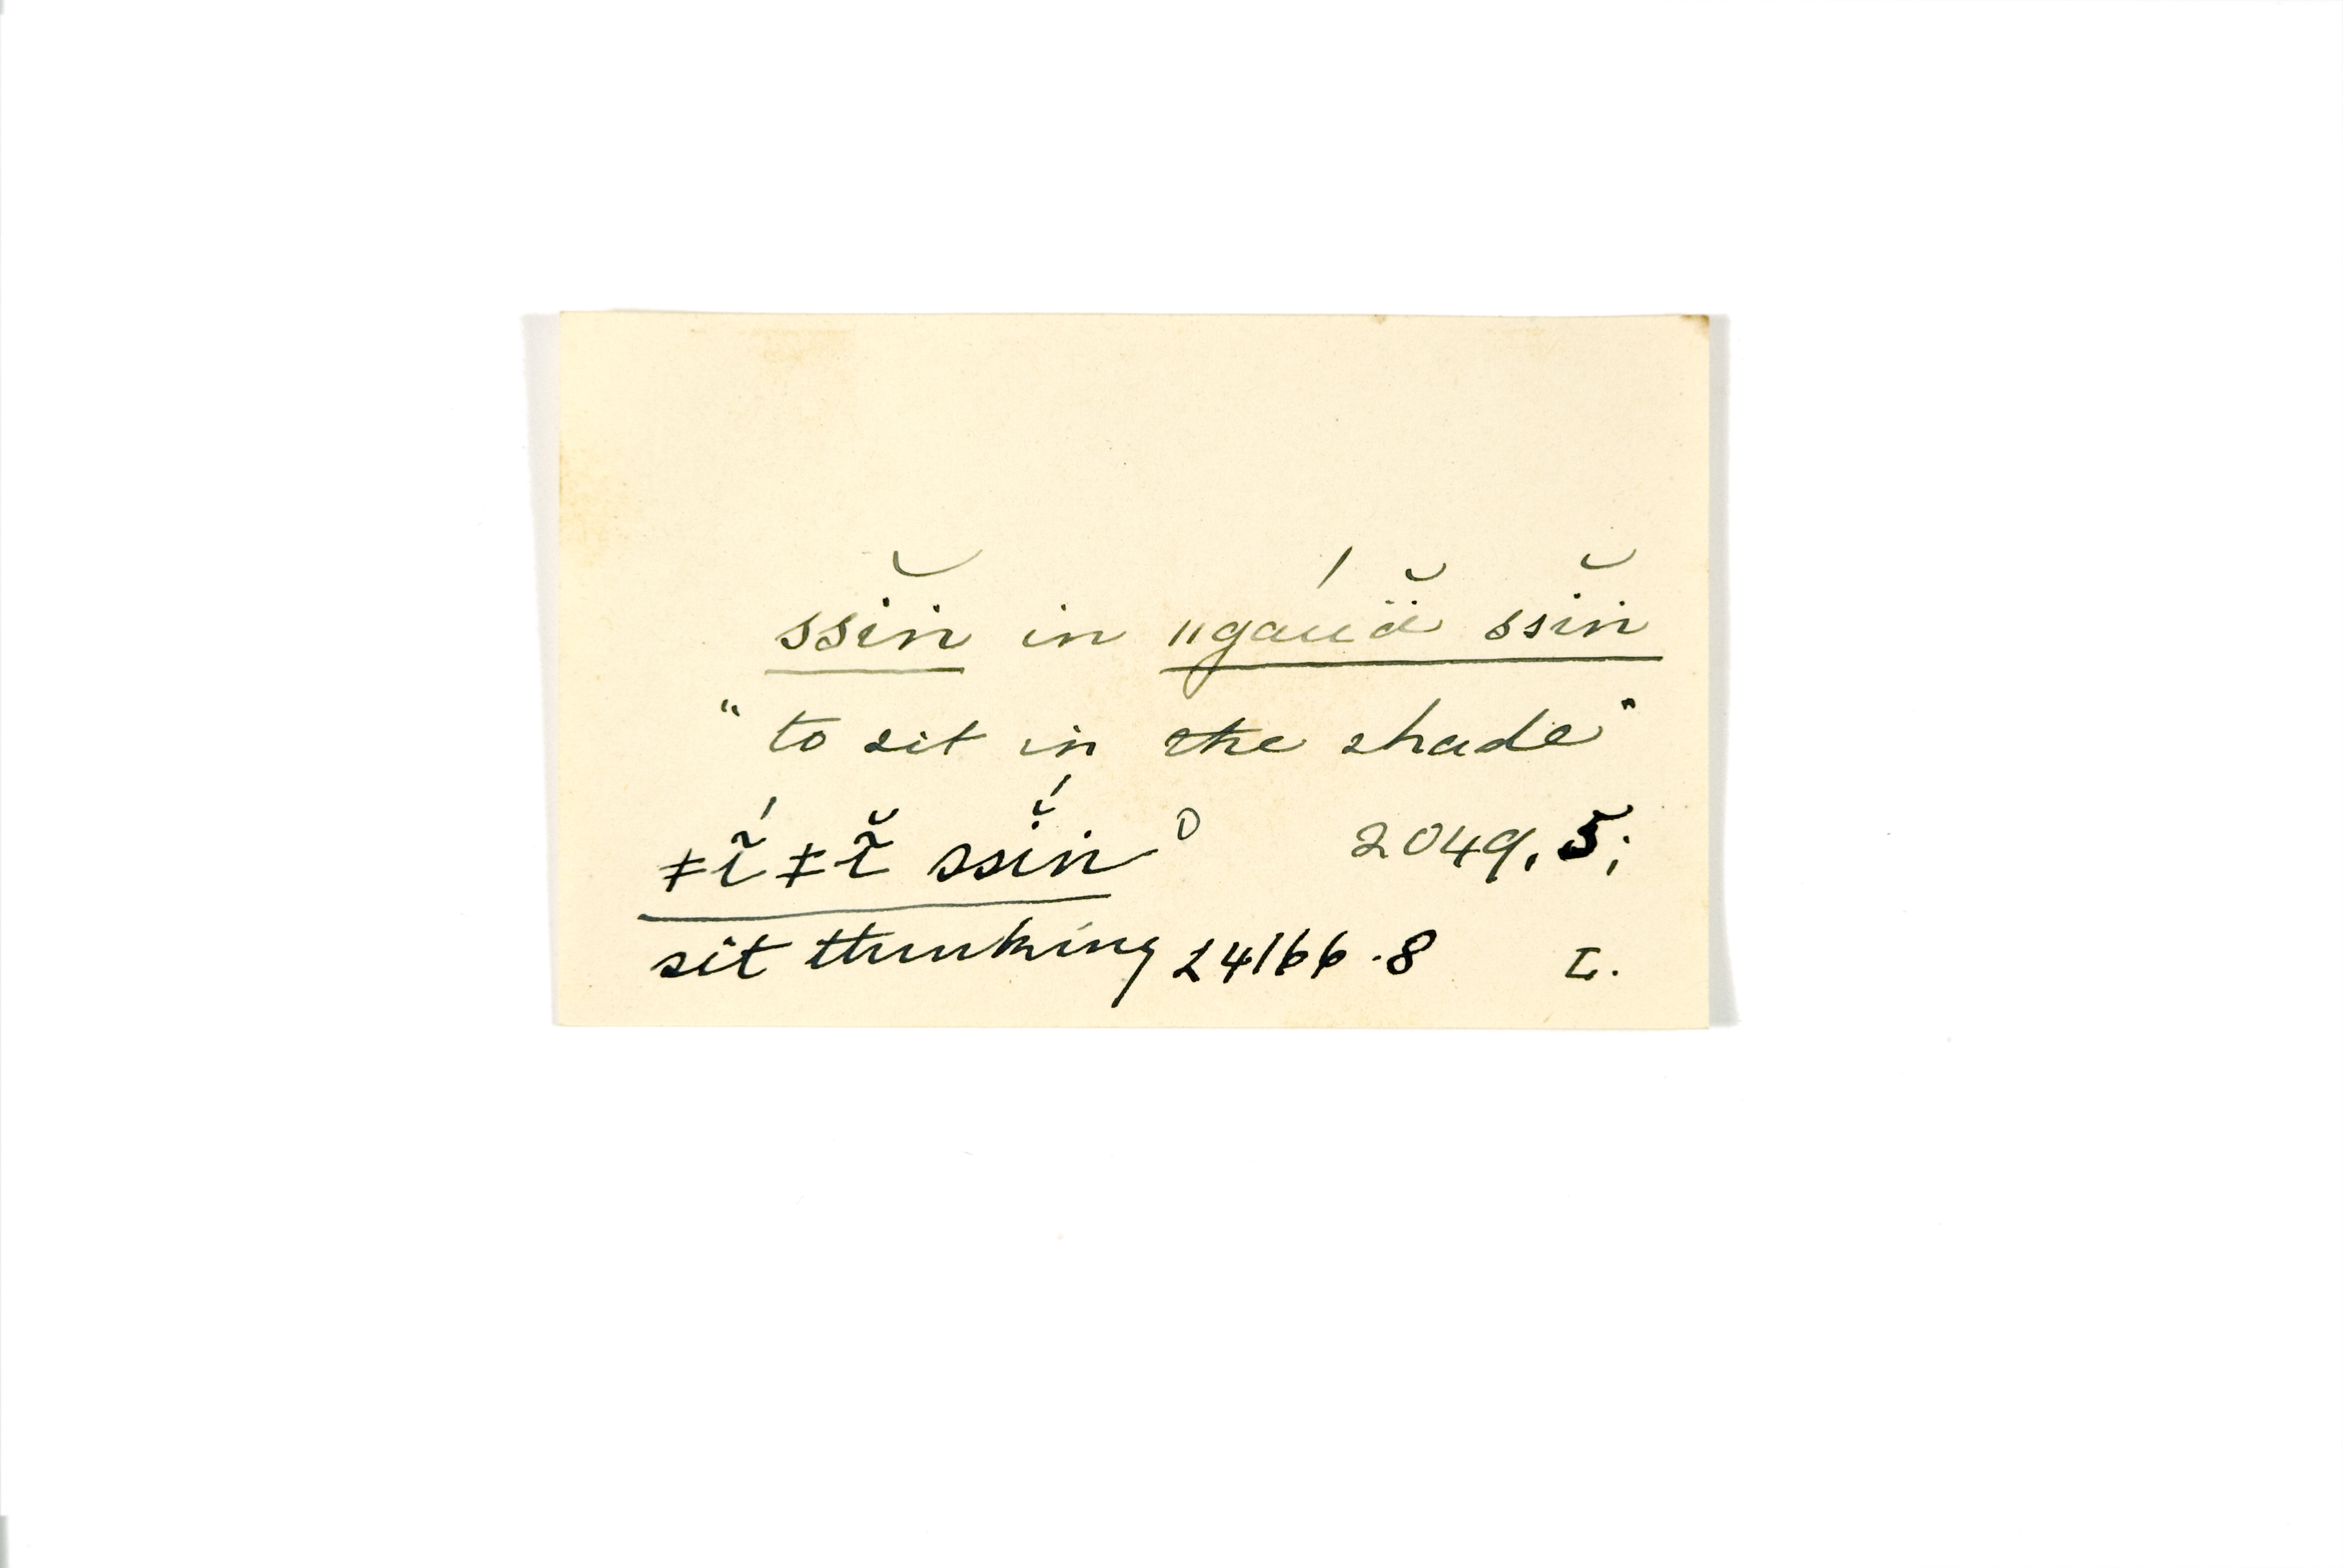 ssĭn in ǁgáuä̆ ssĭn
"to sit in the shade"
ǂĩ́ ǂĩ̆ ssĭ́n⁰ 2049, 5;
sit thinking 24166.8 L.